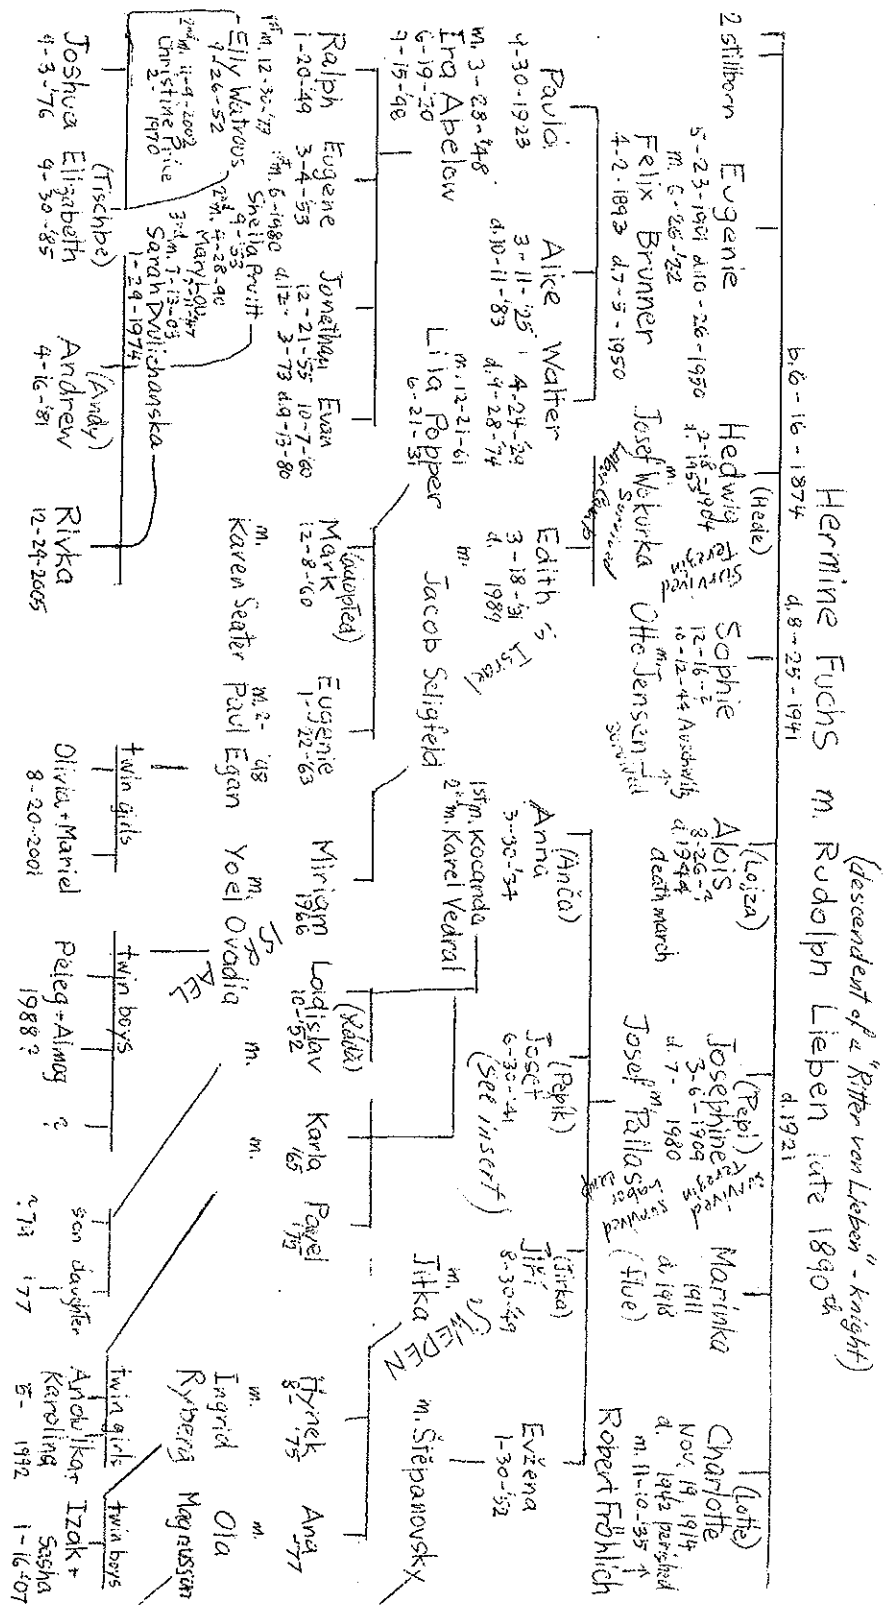 (descendent of a "Ritter von Lieben" - knight)
Hermine Fuchs m. Rudolph Lieben late 1890th
b. 6-16-1874 d. 8-25-1941 d. 1921
2 stillborn
Eugenie
5-23-1901 d. 10-26-1950
m. 6-25-'22
Felix Brunner
4-2-1893 d. 7-5-1950
(Hede)
Hedwig
2-18-1904
d. 1953
survived Terezin
m.
Josef Wokurka
Survived
Sophie
12-16-?
10-12-44 Auschwitz
m.
Otto Jensen
survived
(Lojza)
Alois
8-26-?
d. 1944
death march
(Pepi)
Josephine
3-6-1909
d. 7- 1980
survived Terezin
m.
Josef Pallas
survived labor camp
Marinka
1911
d. 1918
(flue)
(Lotte)
Charlotte
Nov. 19 1914
d. 1942 perished
m. 11-10-'35
Robert Fröhlich
Paula
4-30-1923
m. 3-28-'48
Ira Abelow
6-19-'20
9-15-'98
Alice
3-11-'25
d. 10-11-'83
Walter
4-24-'29
d. 9-28-'74
m. 12-21-61
Lila Popper
6-21-31
Edith
3-18-'31
d. 1989
Israel
m.
Jacob Seligfeld
(Anča)
Anna
3-30-'34
1st m. Kocanda
2nd m. Karel Vedral
(Pepik)
Josef
6-30-'41
(see insert)
(Jirka)
Jiří
8-30-'49
m.
Jitka
SWEDEN
Evžena
1-30-'52
m. Štěpanovsky
Ralph
1-20-'49
1st m. 12-30-'73
Elly Watrous
9/26-52
2nd m. 11-9-2002
Christine Price
2- 1970
Eugene
3-4-'53
1st m. 6-1980
Sheila Pruitt
9- '53
2nd m. 4-28-90
Mary Lou
3rd m. 7-13-03
Sarah Dvulichanska
1-29-1974
Jonathan
12-21-'55
d. 12- 3-73
Evan
10-7-'60
d. 9-13-80
(adopted)
Mark
12-8-'60
m.
Karen Seater
Eugenie
1-22-'63
m. 2-'98
Paul Egan
Miriam
1966
m.
Yoel Ovadia
ISRAEL
(Láďa)
Ladislav
10-'52
m.
Karla
'65
m.
Pavel
Hynek
8-'75
m.
Ingrid
Ryberg
Ana
-77
m.
Ola
Magnusson
Joshua
9-3-'76
(Tischbe)
Elizabeth
9-30-'85
(Andy)
Andrew
4-16-'81
Rivka
12-29-2005
twin girls
Olivia + Mariel
8-20-2001
twin boys
Peleg + Almog
1988?
?
son daughter
'77
twin girls
Andulka +
Karolina
5- 1992
twin boys
Izak +
Sasha
1-16-'07